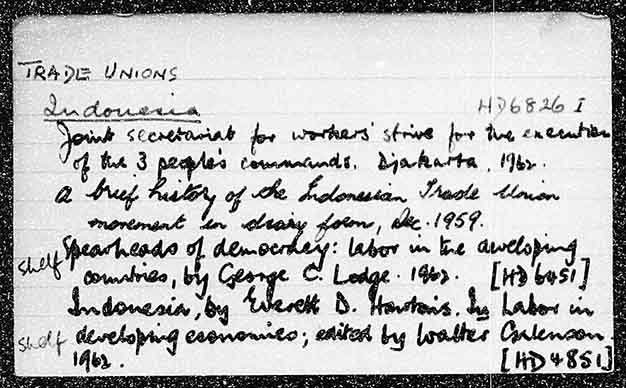 TRADE UNIONS
Indonesia HD6826 I
Joint secretariat for workers' strive for the execution
of the 3 people's commands. Djakarta, 1962.
A brief history of the Indonesian Trade Union
movement in diary form, Dec. 1959.
shelf Spearheads of democracy: labor in the developing
countries, by George C. Lodge. 1962. [HD6451]
Indonesia, by Everett D. Hawkins. In Labor in
shelf developing economies; edited by Walter Galenson
1962. [HD4851]